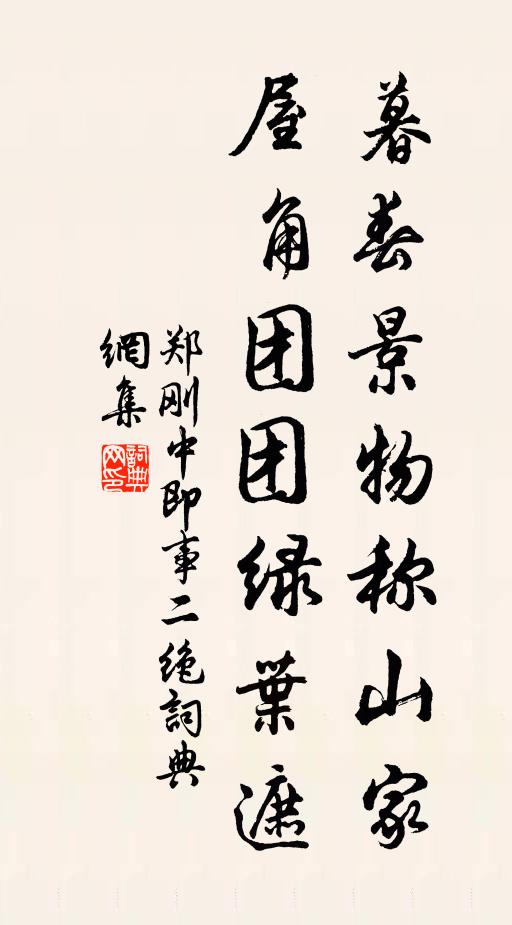 暮春景物称山家
屋角团团绿葉遮
郑刚中即事二绝詞典
網集
詞典
网印